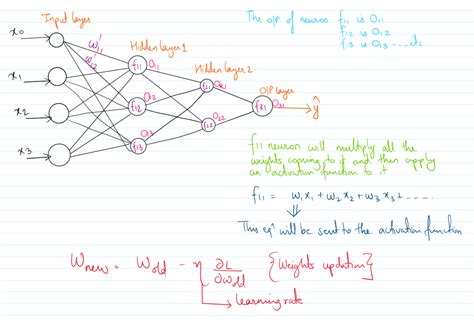 Input layer
x₀
x₁
x₂
x₃
w₁₁'
w₁₂'
Hidden layer 1
f₁₁ O₁₁
f₁₂ O₁₂
f₁₃ O₁₃
Hidden layer 2
f₂₁ O₂₁
f₂₂ O₂₂
O/P layer
f₃₁ O₃₁
ŷ
The o/p of neuron f₁₁ is O₁₁
f₁₂ is O₁₂
f₁₃ is O₁₃ ....etc
f₁₁ neuron will multiply all the
weights coming to it and then apply
an activation function to it
f₁₁ = w₁x₁ + w₂x₂ + w₃x₃ + ......
This eqⁿ will be sent to the activation function
Wnew = Wold - η ∂L/∂Wold {Weights updation}
learning rate